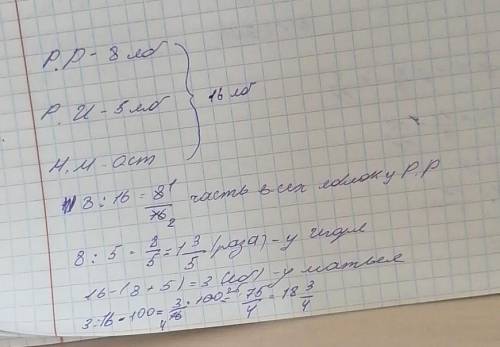 Р.Р - 8 яб
Р. И - 5 яб } 16 яб
Н.М - ост
8 : 16 = 8/16 1/2 часть всех яблок у Р.Р
8 : 5 = 8/5 = 1 3/5 (раза) - у Игоря
16 - (8 + 5) = 3 (яб) - у Матвея
3 : 16 · 100 = 3/16 4 · 100 25 = 75/4 = 18 3/4